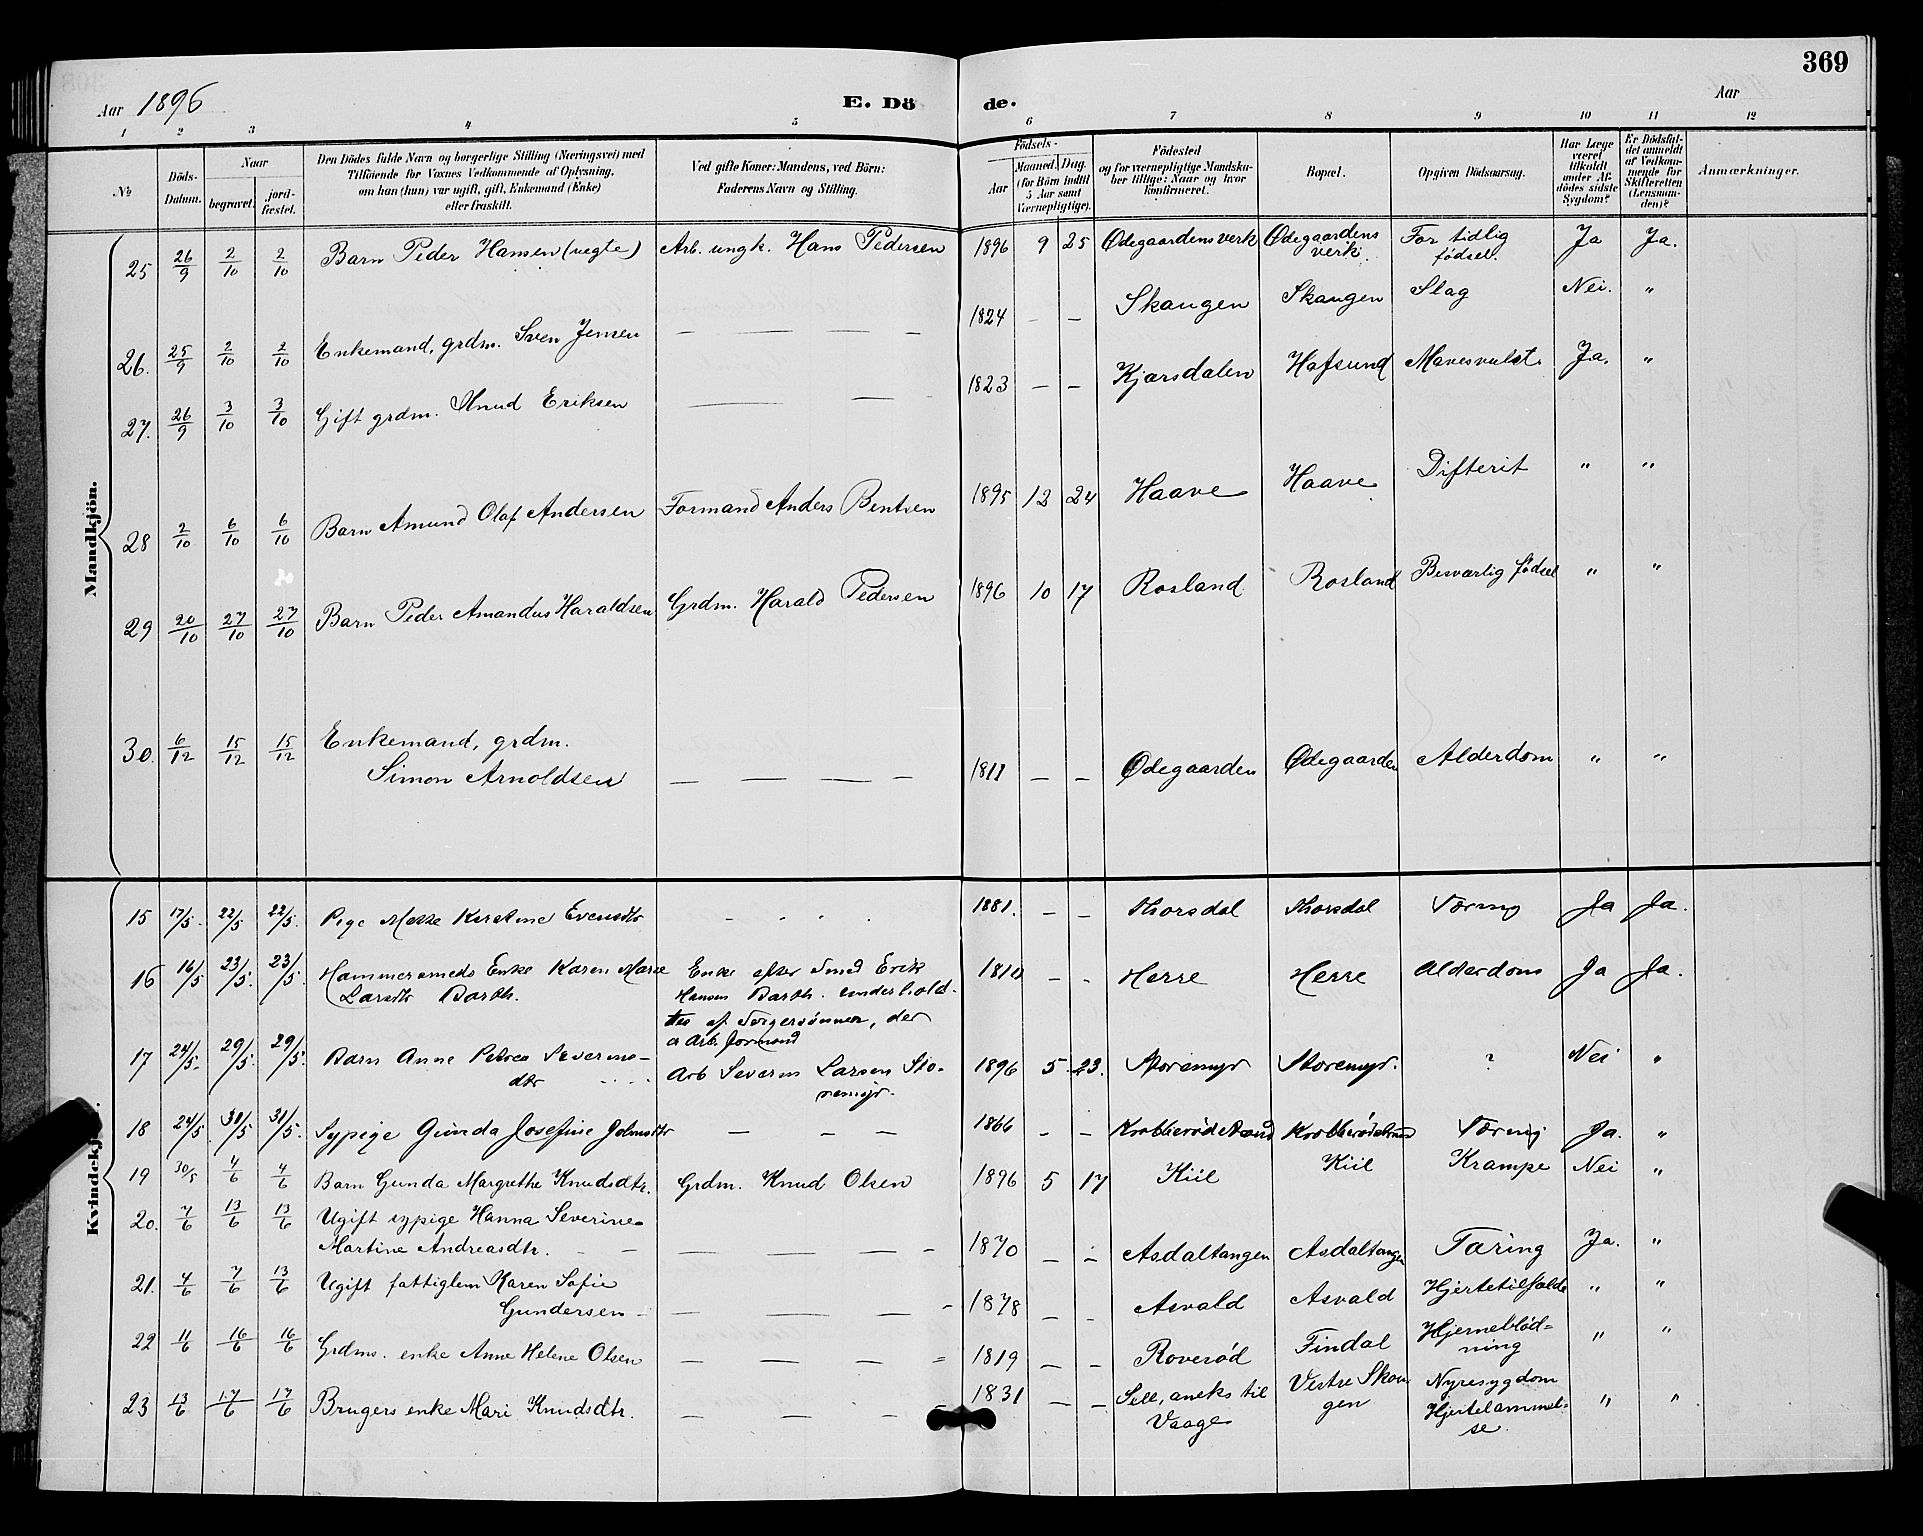 369
Aar 1896
E. Dö de.
Aar
1 2 3 4 5 6 7 8 9 10 11 12
No
Döds-Datum.
Naar
begravet.
jord-fæstet.
Den Dödes fulde Navn og borgerlige Stilling (Næringsvei) med
Tilföiende for Voxnes Vedkommende af Oplysning,
om han (hun) var ugift, gift, Enkemand (Enke)
eller fraskilt.
Ved gifte Koner: Mandens, ved Börn:
Faderens Navn og Stilling.
Födsels-
Aar
Maaned. Dag.
(for Börn indtil
5 Aar samt
Værnepligtige).
Födested
og for værnepligtige Mandska-
ber tillige: Naar og hvor
konfirmeret.
Bopæl.
Opgiven Dödsaarsag.
Har Læge
været
tilkaldt
under Af-
dödes sidste
Sygdom?
Er Dödsfal-
det anmeldt
af Vedkom-
mende for
Skifteretten
(Lensman-
den)?
Anmærkninger.
Mandkjön.
25 26/9 2/10 2/10 Barn Peder Hansen (uegte) Arb. ungk. Hans Pedersen 1896 9 25 Ødegaardens verk Ødegaardens verk. For tidlig fødsel. Ja Ja.
26. 25/9 2/10 2/10 Enkemand, grdm. Sven Jensen — — — — 1824 - - Skaugen Skaugen Slag Nei. "
27. 26/9 3/10 3/10 Gift grdm. Knud Eriksen — — — 1823 — — Kjærsdalen Hafsund Mavesvulst. Ja. "
28 2/10 6/10 6/10 Barn Amund Olaf Andersen Formand Anders Bentsen 1895 12 24 Haave Haave Difterit " "
29 20/10 27/10 27/10 Barn Peder Amandus Haraldsen Grdm. Harald Pedersen 1896 10 17 Rosland Rosland Besværlig fødsel " "
30. 6/12 15/12 15/12 Enkemand, grdm.
Simon Arnoldsen — — — — 1811 — — Ødegaarden Ødegaarden Alderdom " "
Kvindekj
15 17/5. 22/5 22/5. Pige Kirstine Evensdtr - - - - 1881. - - Thorsdal Thorsdal Tæring Ja Ja.
16 16/5 23/5. 23/5. Hammersmeds Enke Karen Marie
Larsdtr Barth. Enke efter Smed Erik
Hansen Barth. underhold-
tes af Svigersønnen, der
er arb. formand 1810 - - Herre Herre Alderdom Ja Ja.
17 24/5- 29/5. 29/5. Barn Anne Petrea Severins-
dtr Arb Severin Larsen Sto-
remyr. 1896 5. 23. Storemyr Storemyr. ? Nei "
18 24/5. 31/5 31/5. Sypige Gunda Josefine Johnsdtr — — — 1866 - - Tæring Ja. "
19 30/5 4/6 4/6 Barn Gunda Margrethe Knudsdtr. Grdm. Knud Olsen 1896 5 17 Kiil Kiil Krampe Nei "
20. 7/6 13/6 13/6 Ugift sypige Hanna Severine
Martine Andreasdtr. — — — — 1870 — - Asdaltangen Asdaltangen Tæring Ja. "
21. 4/6 7/6 13/6 Ugift fattiglem Karen Sofie
Gundersen — — — — 1878 — - Asvald Asvald Hjertetilfælde " "
22 11/6 16/6 16/6 Grdms. enke Anne Helene Olsen — — — = 1819 — - Roverød Findal Hjerneblød=
ning " "
23 13/6 17/6 17/6 Brugers enke Mari Knudsdtr. — — — — 1831 — — Sell, aneks til
Vaage Vestre Skau
gen Nyresygdom
Hjertelammel=
se. " "